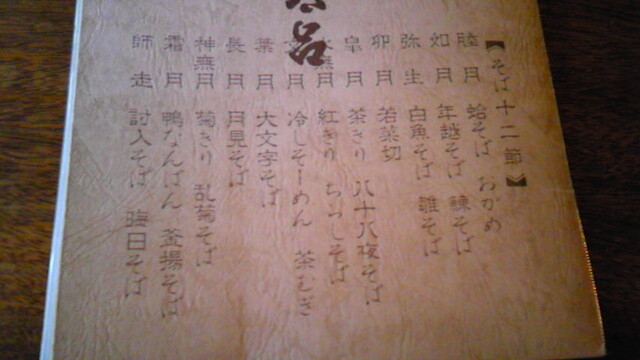 呂
【そば十二節】
睦月 蛤そば おかめ
如月 年越そば 諫そば
弥生 白魚そば 雛そば
卯月 若菜切
皐月 茶きり 八十八夜そば
水無月 紅きり ちらしそば
文月 冷しそーめん 茶むぎ
葉月 大文字そば
長月 月見そば
神無月 菊きり 乱菊そば
霜月 鴨なんばん 釜揚そば
師走 討入そば 晦日そば